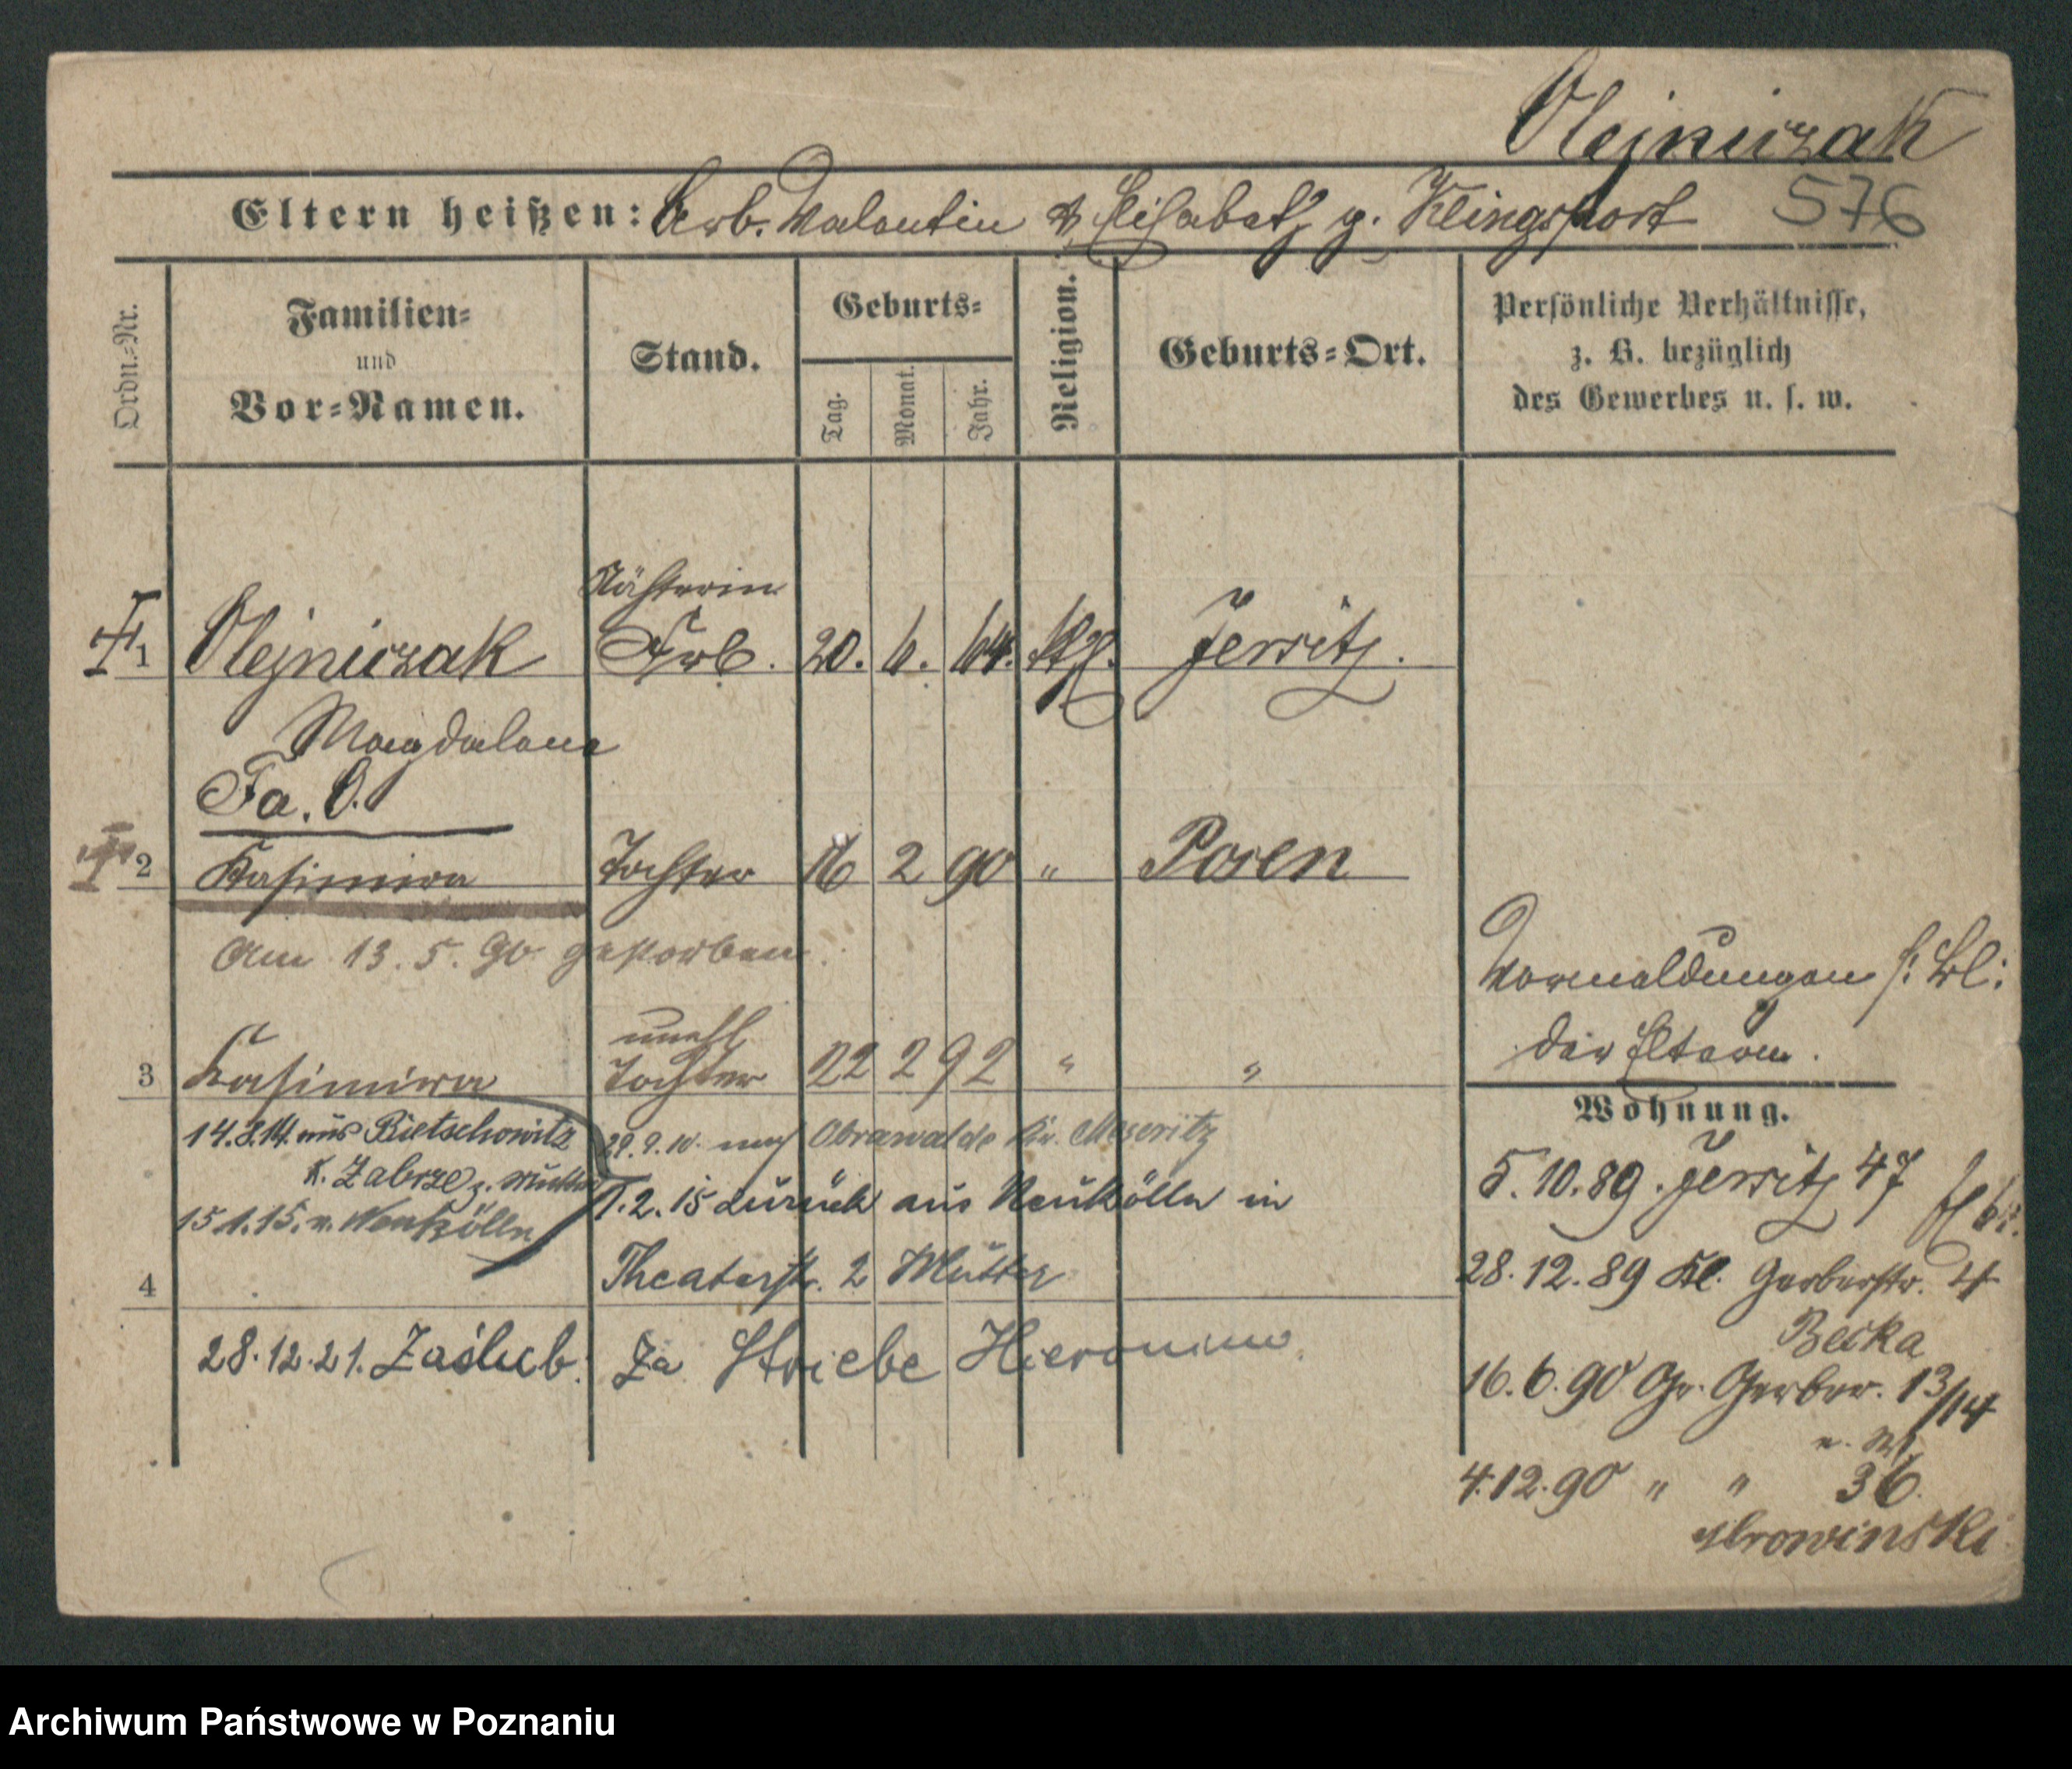 Olejniczak
Eltern heißen: Arb. Valentin & Elisabeth g. Klingsport 576
Ordn.=Nr.
Familien=
und
Vor=Namen.
Stand.
Geburts=
Tag.
Monat.
Jahr.
Religion.
Geburts=Ort.
Persönliche Verhältnisse,
z. B. bezüglich
des Gewerbes u. s. w.
Nähterin
1 Olejniczak Arb. 20. 6. 64. kth. Jersitz.
Magdalena
Fa. O.
2 Kasimira Tochter 16 2 90 " Posen
Am 13. 5. 90 gestorben.
Vermeldungen s. Bl:
der Eltern.
unehl
3 Kasimira Tochter 22 2 92 " "
14.8.14. aus Bietschowitz
K. Zabrze z. Mutter
15 1.15. n. Neukölln
29.9.10. nach Obrawalde Kr. Meseritz
1.2.15 zurück aus Neukölln in
Theaterstr. 2 Mutter
4
28.12.21. Zaślub. za Striebe Hieronim.
Wohnung.
5.10.89. Jersitz 47
28.12.89 Kl. Gerberstr. 4
Becka
16.6.90 Gr. Gerber. 13/14
4.12.90 " " 36.
Archiwum Państwowe w Poznaniu